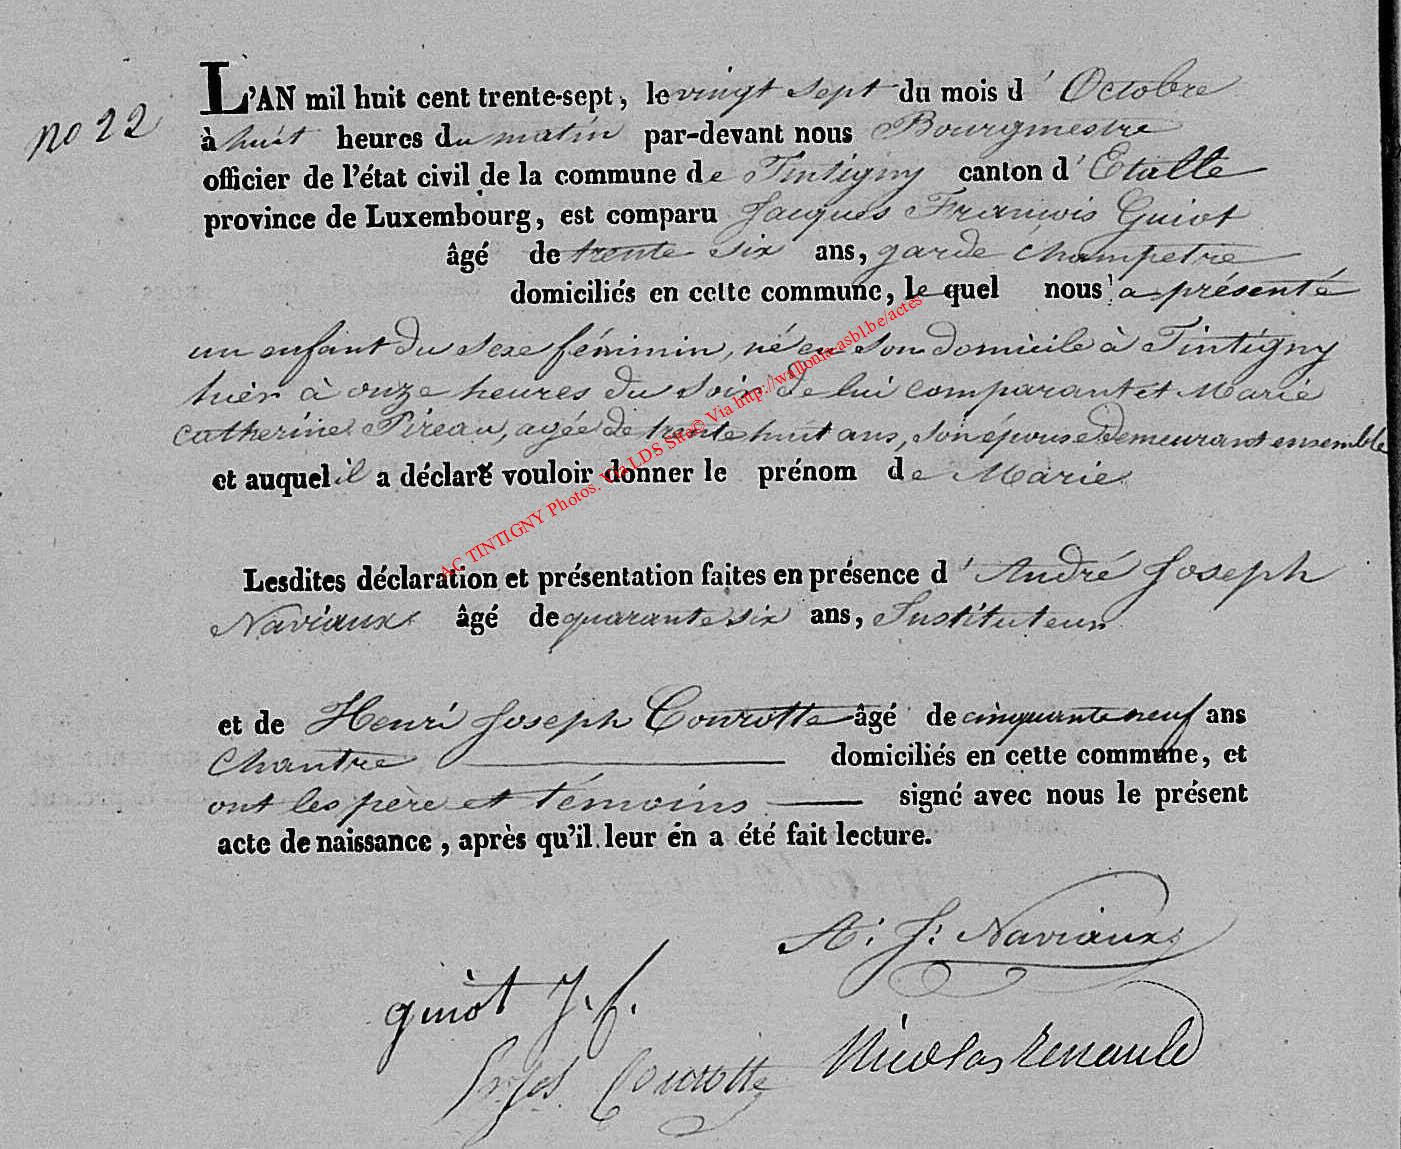 L'AN mil huit cent trente-sept, le vingt sept du mois d' Octobre
no 22
à huit heures du matin par-devant nous Bourgmestre
officier de l'état civil de la commune de Tintigny canton d' Etalle
province de Luxembourg, est comparu Jacques François Guiot
âgé de trente six ans, garde champetre
domiciliés en cette commune, le quel nous a présenté
un enfant du sexe féminin, né en son domicile à Tintigny
hier à onze heures du soir de lui comparant et Marie
catherine Pireau, agée de trente huit ans, son épouse demeurant ensemble
et auquel il a déclaré vouloir donner le prénom de Marie
AC TINTIGNY Photos. Via LDS Site© Via http://wallonia-asbl.be/actes
Lesdites déclaration et présentation faites en présence d' André Joseph
Naviaux âgé de quarante six ans, Instituteur
et de Henri Joseph Courotte âgé de cinquante neuf ans
Chantre domiciliés en cette commune, et
ont les père et témoins signé avec nous le présent
acte de naissance, après qu'il leur en a été fait lecture.
A. J. Naviaux
guiot J. f.
Courotte Nicolas Renauld